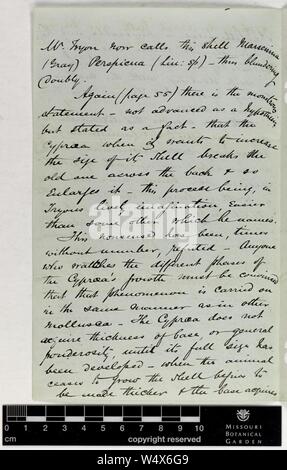 Mr. Tryon now calls this shell Marsenina
(Gray) Perspicua (Lin: sp) - thus blundering
doubly.
Again (page 55) there is the monstrous
statement - not advanced as a hypothesis
but stated as a fact - that the
Cypræa when it wants to increase
the size of its shell breaks the
old one across the back & so
Enlarges it - this process being, in
Tryons lively imagination, easier
than some other which he names.
This nonsense has been, times
without number, refuted - Anyone
who watches the different phases of
the Cypræa's growth must be convinced
that that phenomenon is carried on
in the same manner as in other
mollusca - The Cypræa does not
acquire thickness of base, or general
ponderosity, until its full size has
been developed - when the animal
ceases to grow the shell begins to
be made thicker & the base acquires
alamy
0 1 2 3 4 5 6 7 8 9 10
cm
copyright reserved
MISSOURI
BOTANICAL
GARDEN
alamy
Image ID: W4X6G9
www.alamy.com